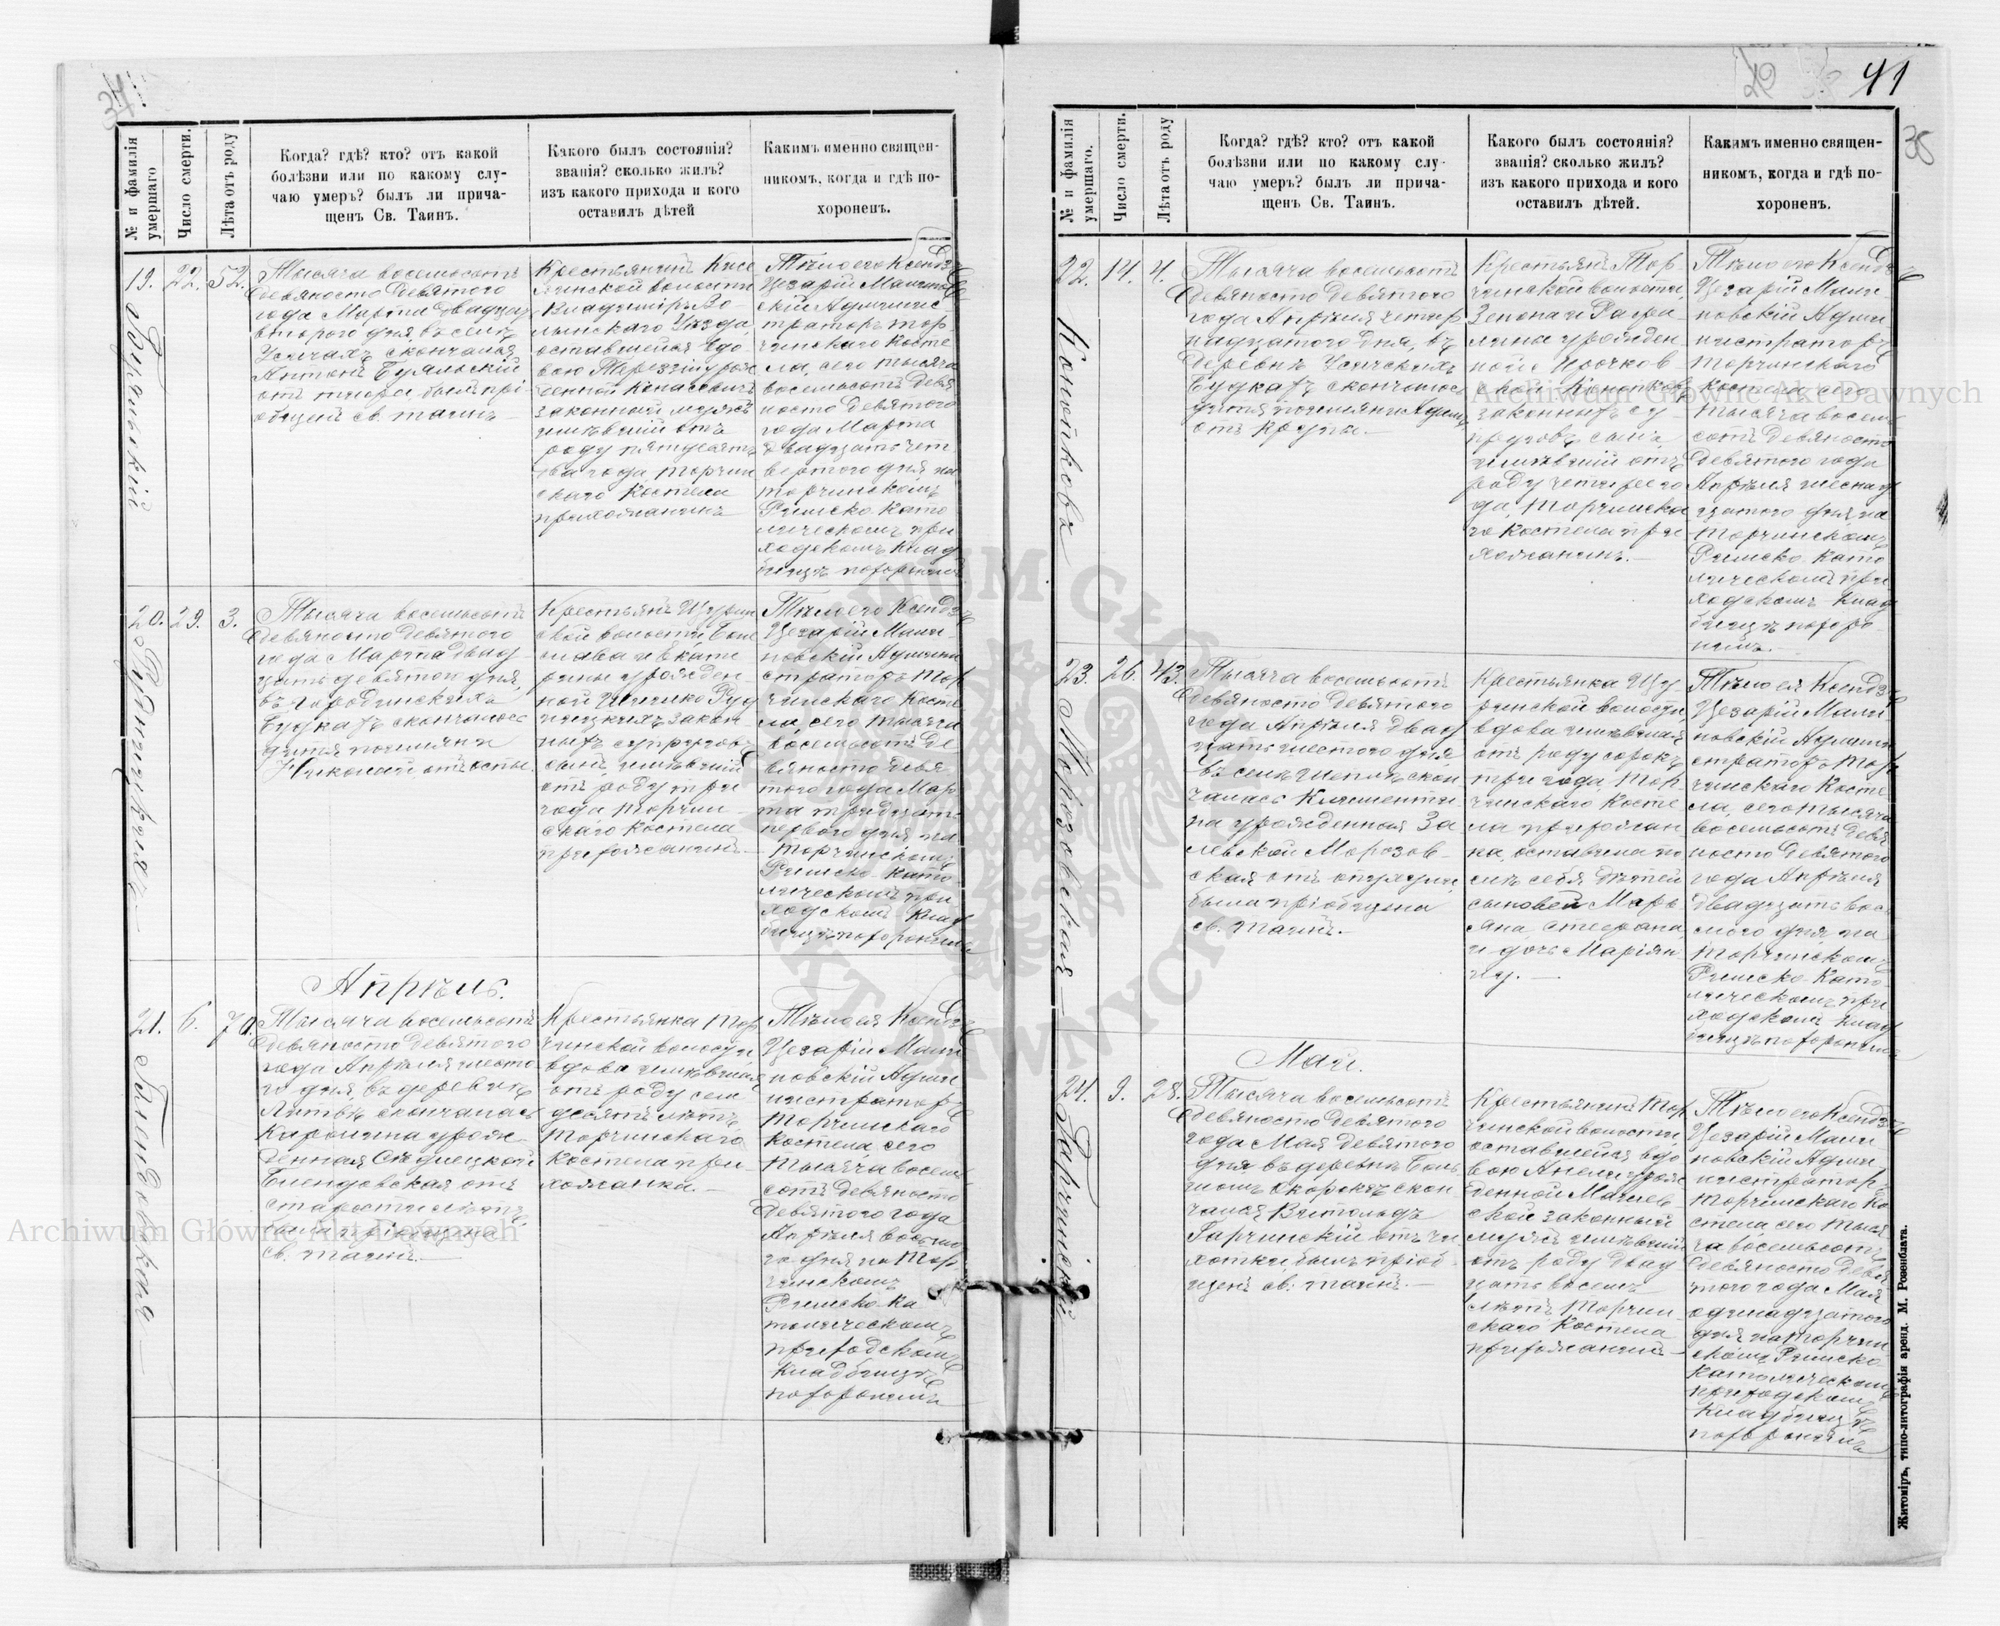 34
№ и фамилія умершаго
Число смерти.
Лѣта отъ роду
Когда? гдѣ? кто? отъ какой
болѣзни или по какому слу-
чаю умеръ? былъ ли прича-
щенъ Св. Таинъ.
Какого былъ состоянія?
званія? сколько жилъ?
изъ какого прихода и кого
оставилъ дѣтей
Какимъ именно священ-
никомъ, когда и гдѣ по-
хороненъ.
19.
22.
52.
Тысяча восемьсотъ
девяносто девятого
года Марта двадцать
второго дня, въ селѣ
скончался
Антонъ Буяльскій
отъ
св. таинъ
Крестьянинъ Кисе
линской волости
Владиміръ Во-
лынскаго Уѣзда
оставшейся вдо-
вою
законный мужъ
имѣвшій отъ
роду пятьдесятъ
два года, Торчин
скаго Костела
прихожанинъ
Тѣло его Ксендзъ
Цезарій Малинов
скій Админис
траторъ Тор-
чинскаго Косте
ла, сего тысяча
восемьсотъ девя
носто девятого
года Марта
двадцать чет
вертого дня на
Торчинскомъ
Римско Като
лическомъ при
ходскомъ клад
бищѣ похоронилъ
20.
29.
3.
Тысяча восемьсотъ
девяносто девятого
года Марта двад-
цать девятого дня,
въ Городинскихъ
Будкахъ скончалось
дитя по имяни
Николай отъ оспы.
Крестьянъ Щурин
ской волости
и Екате
рины урожден-
ной
закон-
ныхъ супруговъ
сынъ, имѣвшій
отъ роду три
года, Торчин-
скаго Костела
прихожанинъ.
Тѣло его Ксендзъ
Цезарій Мали-
новскій Админи
страторъ Тор
чинскаго Косте
ла, сего тысяча
восемьсотъ де
вяносто девя-
того года Мар
та тридцать
первого дня на
Торчинскомъ
Римско-Като
лическомъ при
ходскомъ клад
бищѣ похоронилъ
Апрѣль.
21.
6.
70.
Тысяча восемьсотъ
девяносто девятого
года Апрѣля шесто
го дня, въ деревнѣ
скончалась
Каролина урож-
денная
отъ
старости лѣтъ,
была пріобщена
св. таинъ.
Крестьянка Тор
чинской волости
вдова имѣвшая
отъ роду сем
десятъ лѣтъ,
Торчинскаго
Костела при-
хожанка.
Тѣло ея Ксендзъ
Цезарій Мали
новскій Админ
истраторъ
Торчинскаго
Костела, сего
тысяча восемь
сотъ девяносто
девятого года
Апрѣля восьмо
го дня на Тор-
чинскомъ
Римско-Ка
толическомъ
приходскомъ
кладбищѣ
похоронилъ
Буяльскій
41
38
№ и фамилія умершаго.
Число смерти.
Лѣта отъ роду
Когда? гдѣ? кто? отъ какой
болѣзни или по какому слу-
чаю умеръ? былъ ли прича-
щенъ Св. Таинъ.
Какого былъ состоянія?
званія? сколько жилъ?
изъ какого прихода и кого
оставилъ дѣтей.
Какимъ именно священ-
никомъ, когда и гдѣ по-
хороненъ.
22.
14.
4.
Тысяча восемьсотъ
девяносто девятого
года Апрѣля четыр
надцатого дня, въ
деревнѣ Усичскихъ
Будкахъ скончалось
дитя по имяни Адамъ
отъ крупы.
Крестьянъ Тор-
чинской волости,
Зенона и
урожден-
ной
законныхъ су-
пруговъ сынъ
имѣвшій отъ
роду четыре го
да, Торчинска
го Костела при
хожанинъ.
Тѣло его Ксендзъ
Цезарій Мали-
новскій Адми
нистраторъ
Торчинскаго
Костела, сего
тысяча восемь
сотъ девяносто
девятого года
Апрѣля шеснад
цатого дня на
Торчинскомъ
Римско-Като
лическомъ при
ходскомъ клад
бищѣ похоро-
нилъ.
23.
26.
43.
Тысяча восемьсотъ
девяносто девятого
года Апрѣля двад
цать шестого дня
въ селѣ Шепелѣ скон
чалась Климентi
на урожденная За
левской Морозов-
ская отъ опухоли,
была пріобщена
св. таинъ.
Крестьянка Щу-
ринской волости
вдова имѣвшая
отъ роду сорокъ
три года, Тор
чинскаго Косте
ла прихожан
ка, оставила по
слѣ себя дѣтей
сыновей Марь
яна, Стефана
и дочь Маріан
ну.
Тѣло ея Ксендзъ
Цезарій Мали
новскій Админи
страторъ Тор
чинскаго Косте
ла, сего тысяча
восемьсотъ девя
носто девятого
года Апрѣля
двадцать вось
мого дня на
Торчинскомъ
Римско-Като
лическомъ при
ходскомъ клад
бищѣ похоронилъ
Май.
24.
9.
28.
Тысяча восемьсотъ
девяносто девятого
года Мая девятого
дня въ деревнѣ Боль
шомъ скон
чался Витольдъ
Гарчинскій отъ ча
хотки, былъ пріоб-
щенъ св. таинъ.
Крестьянинъ Тор
чинской волости
оставшейся вдо
вою Анели урож
денной
законный
мужъ имѣвшій
отъ роду двад
цать восемь
лѣтъ, Торчин
скаго Костела
прихожанинъ
Тѣло его Ксендзъ
Цезарій Мали
новскій Админ
истраторъ
Торчинскаго Ко
стела сего тыся
ча восемьсотъ
девяносто девя
того года Мая
одинадцатого
дня на Торчин
скомъ Римско-
католическомъ
приходскомъ
кладбищѣ
похоронилъ
Морозовская
Гарчинскій
Житоміръ, типо-литографія аренд. М. Розенблата.
Archiwum Główne Akt Dawnych
Archiwum Główne Akt Dawnych